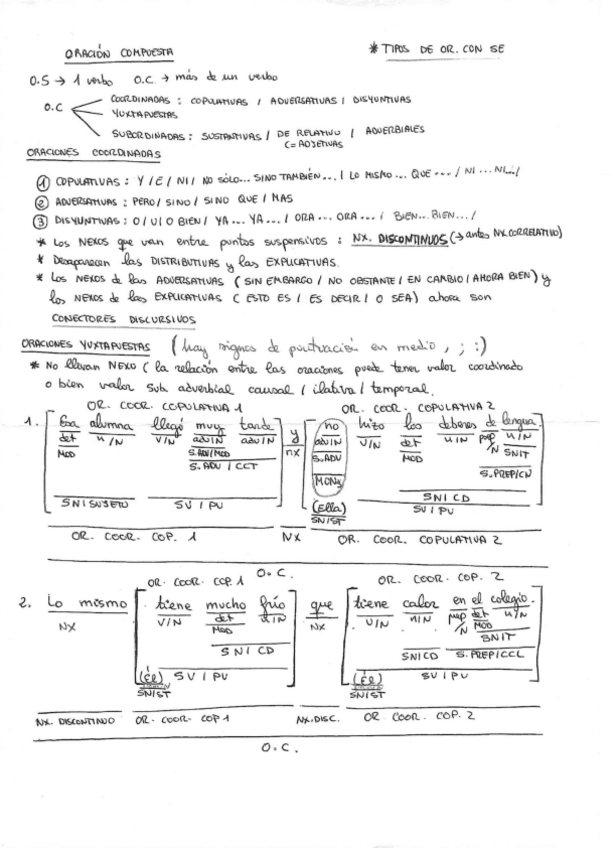 ORACIÓN COMPUESTA
* TIPOS DE OR. CON SE
O.S → 1 verbo O.C → más de un verbo
O.C
COORDINADAS : COPULATIVAS / ADVERSATIVAS / DISYUNTIVAS
YUXTAPUESTAS
SUBORDINADAS : SUSTANTIVAS / DE RELATIVO / ADVERBIALES
(= ADJETIVAS
ORACIONES COORDINADAS
① COPULATIVAS : Y / E / NI / NO SÓLO... SINO TAMBIÉN... / LO MISMO... QUE... / NI ... NI.../
② ADVERSATIVAS : PERO / SINO / SINO QUE / MAS
③ DISYUNTIVAS : O / U / O BIEN / YA... YA... / ORA... ORA... / BIEN... BIEN.../
* Los NEXOS que van entre puntos suspensivos : NX. DISCONTINUOS (→ antes NX.CORRELATIVO)
* Desaparecen las DISTRIBUTIVAS y las EXPLICATIVAS.
* Los NEXOS de las ADVERSATIVAS ( SIN EMBARGO / NO OBSTANTE / EN CAMBIO / AHORA BIEN ) y
los NEXOS de las EXPLICATIVAS ( ESTO ES / ES DECIR / O SEA ) ahora son
CONECTORES DISCURSIVOS
ORACIONES YUXTAPUESTAS ( hay signos de puntuación en medio , ; : )
* No llevan NEXO ( la relación entre las oraciones puede tener valor coordinado
o bien valor sub adverbial causal / ilativa / temporal.
OR. COOR. COPULATIVA 1 OR. COOR. COPULATIVA 2
1. Esa alumna llegó muy tarde y no hizo los deberes de lengua.
det N/N V/N adv/N adv/N nx adv/N V/N det N/N prep/N N/N
MOD S.ADV/MOD S.ADV MOD SN/T
S.ADV / CCT MOD S.PREP/CN
SN/SUJETO SV / PV SN / CD
(Ella) SV / PV
SN/ST
OR. COOR. COP. 1 NX OR. COOR. COPULATIVA 2
O.C.
OR. COOR. COP. 1 OR. COOR. COP. 2
2. Lo mismo tiene mucho frío que tiene calor en el colegio.
NX V/N det N/N NX V/N N/N prep/N det N/N
MOD MOD
SN/T
SN / CD SN/CD S.PREP/CCL
(Él) SV / PV (Él) SV / PV
SN/ST SN/ST
NX. DISCONTINUO OR. COOR. COP 1 NX.DISC. OR. COOR. COP. 2
O.C.